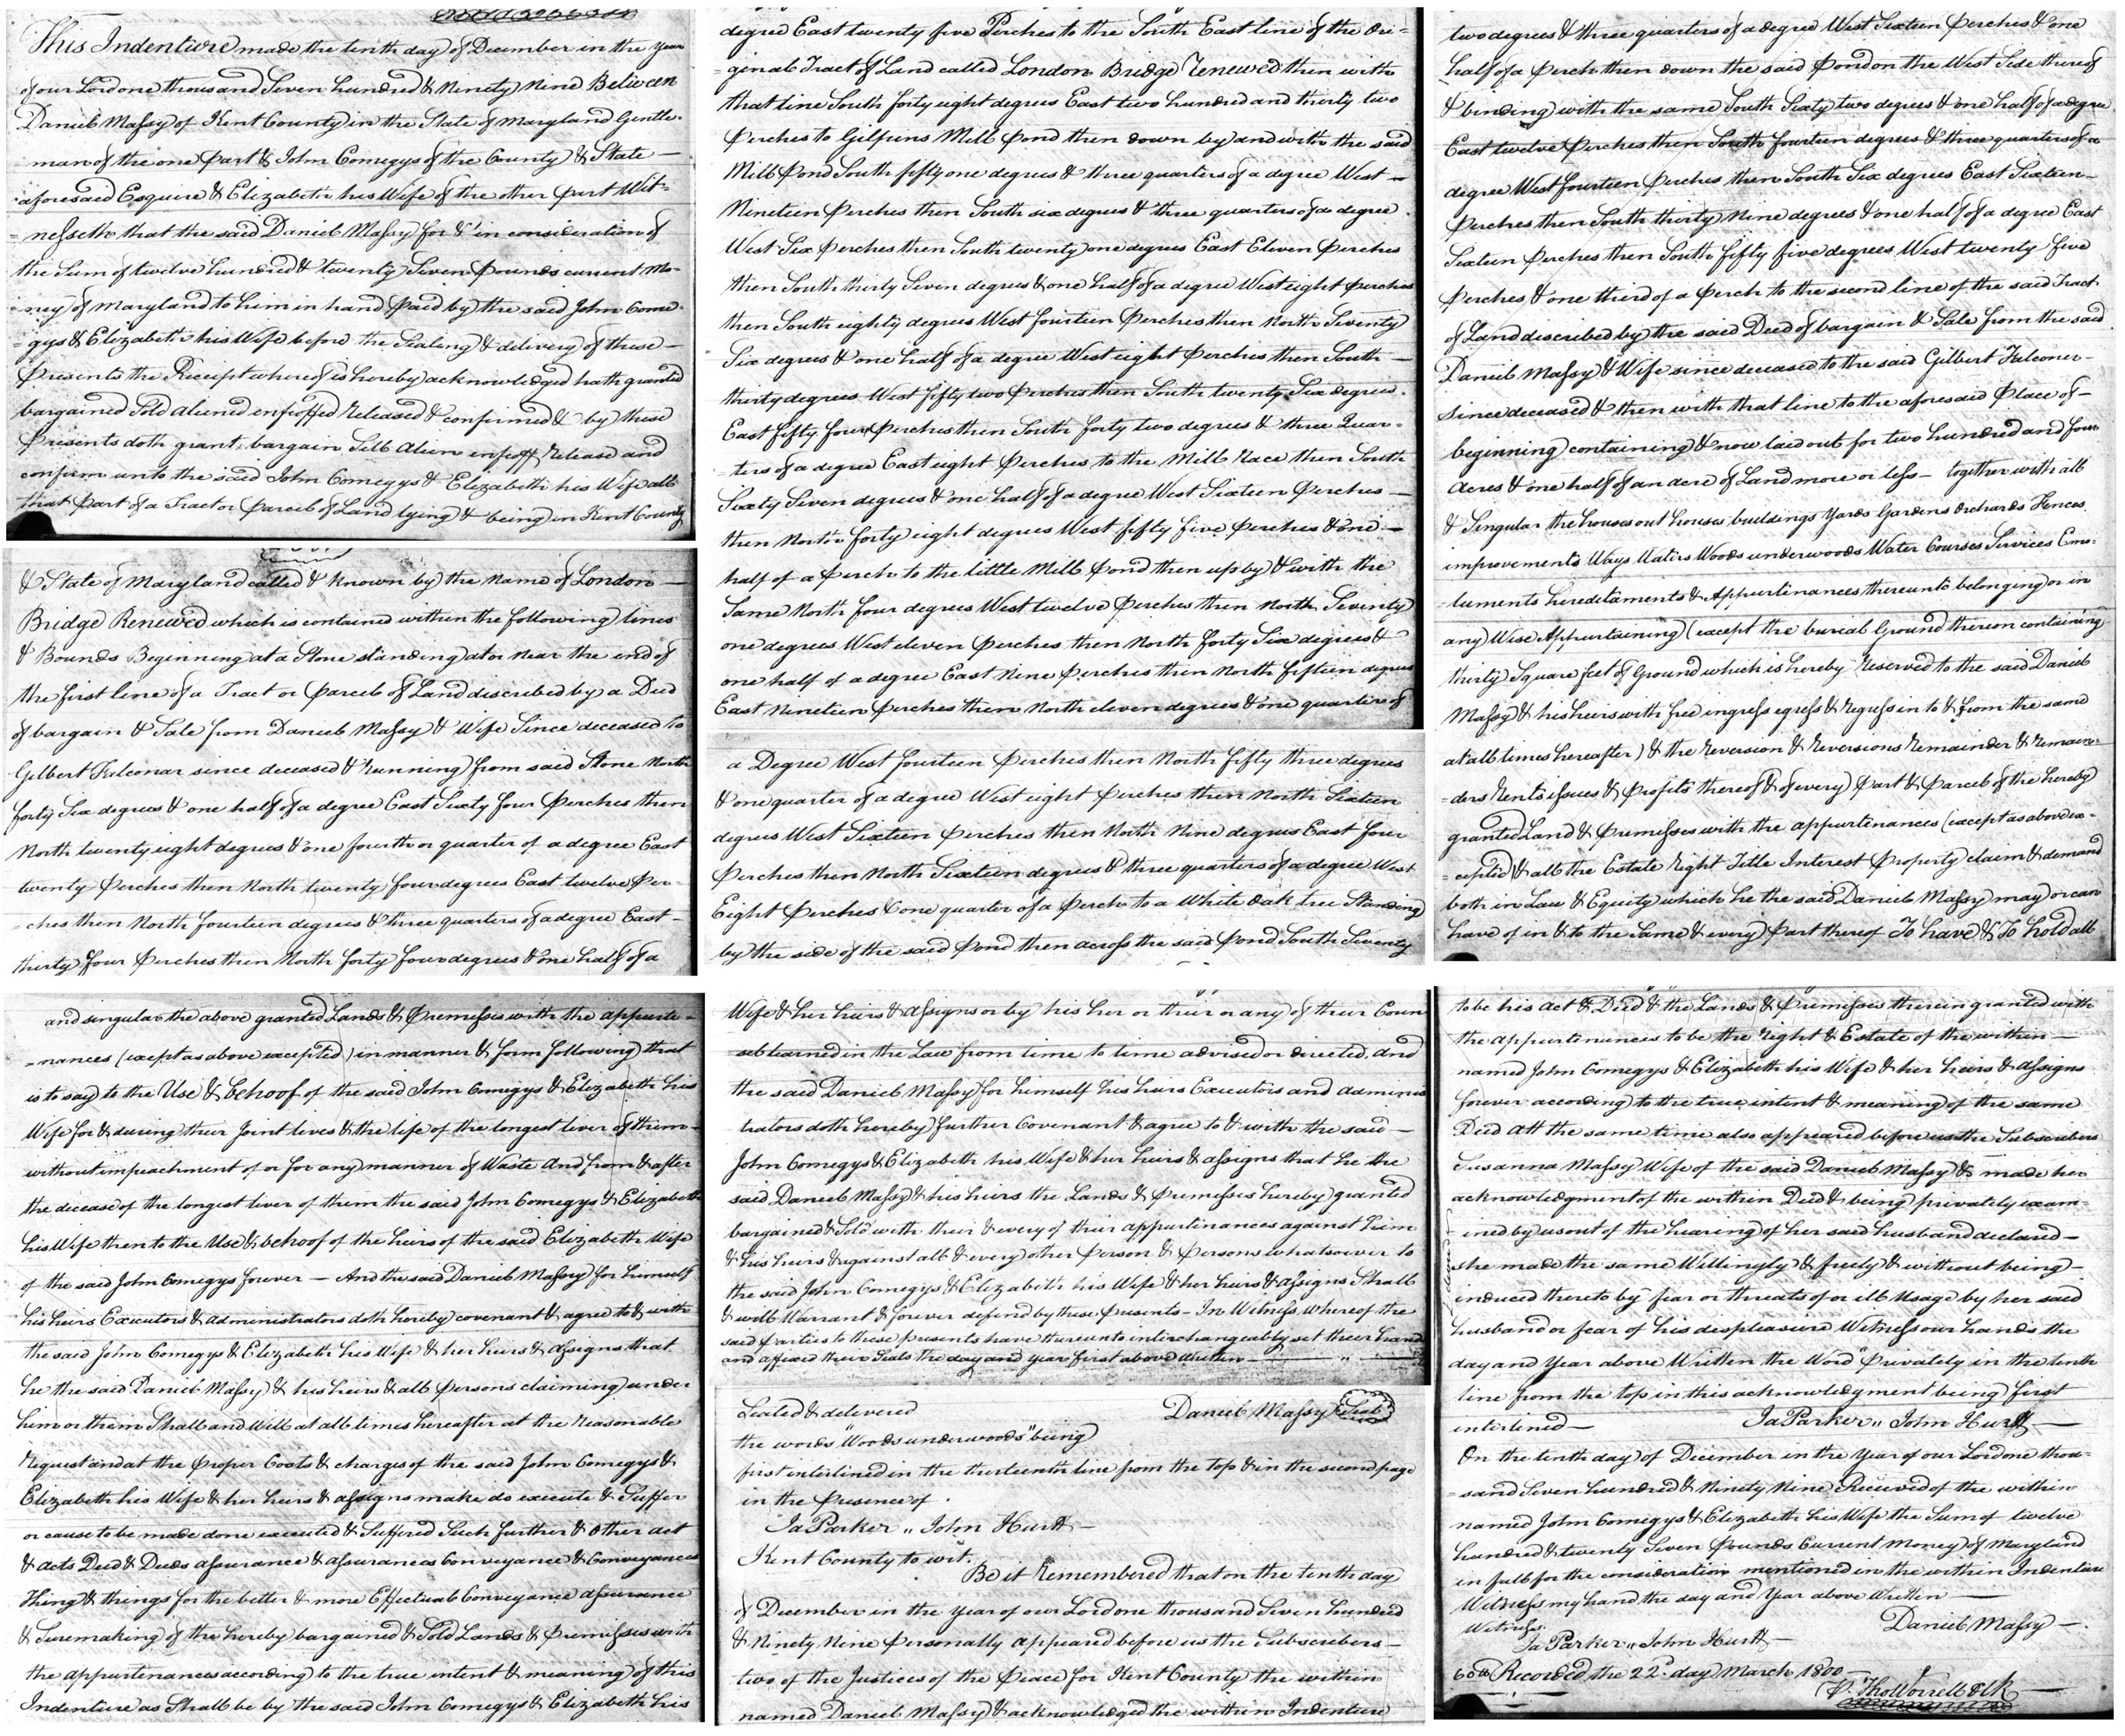 This Indenture made the tenth day of December in the year
of our Lord one thousand Seven hundred & Ninety Nine Between
Daniel Massy of Kent County in the State of Maryland Gentle-
man of the one Part & John Comegys of the County & State —
aforesaid Esquire & Elizabeth his Wife of the other Part Wit-
-nesseth that the said Daniel Massy for & in consideration of
the Sum of twelve hundred & twenty Seven Pounds current Mo-
-ney of Maryland to him in hand Paid by the said John Come-
-gys & Elizabeth his Wife before the Sealing & delivery of these —
Presents the Receipt whereof is hereby acknowledged hath granted
bargained Sold aliened enfeoffed Released & confirmed & by these
Presents doth grant, bargain Sell Alien enfeoff Release and
confirm unto the said John Comegys & Elizabeth his Wife all
that Part of a Tract or Parcel of Land lying & being in Kent County
& State of Maryland called & known by the name of London —
Bridge Renewed which is contained within the following lines
& Bounds Beginning at a Stone standing at or near the end of
the first line of a Tract or Parcel of Land described by a Deed
of bargain & Sale from Daniel Massy & Wife Since deceased to
Gilbert Falconar since deceased & running from said Stone North
forty Six degrees & one half of a degree East Sixty four Perches then
North twenty eight degrees & one fourth or quarter of a degree East
twenty Perches then North twenty four degrees East twelve Per-
-ches then North fourteen degrees & three quarters of a degree East -
thirty four Perches then North forty four degrees & one half of a
degree East twenty five Perches to the South East line of the Ori-
-ginal Tract of Land called London Bridge Renewed then with
that line South forty eight degrees East two hundred and thirty two
Perches to Gilpins Mill Pond then down by and with the said
Mill Pond South fifty one degrees & three quarters of a degree West —
Nineteen Perches then South six degrees & three quarters of a degree
West Six Perches then South twenty one degrees East Eleven Perches
then South thirty Seven degrees & one half of a degree West eight Perches
then South eighty degrees West fourteen Perches then North Seventy
Six degrees & one half of a degree West eight Perches then South —
thirty degrees West fifty two Perches then South twenty Six degrees
East fifty four Perches then South forty two degrees & three Quar-
-ters of a degree East eight Perches to the Mill Race then South
Sixty Seven degrees & one half of a degree West Sixteen Perches —
then North forty eight degrees West fifty five Perches & one —
half of a Perch to the little Mill Pond then up by & with the
Same North four degrees West twelve Perches then North Seventy
one degrees West eleven Perches then North forty Six degrees &
one half of a degree East Nine Perches then North fifteen degrees
East Nineteen Perches then North eleven degrees & one quarter of
a Degree West fourteen Perches then North fifty three degrees
& one quarter of a degree West eight Perches then North Sixteen
degrees West Sixteen Perches then North Nine degrees East four
Perches then North Sixteen degrees & three quarters of a degree West
Eight Perches & one quarter of a Perch to a White Oak tree Standing
by the side of the said Pond then across the said Pond South Seventy
two degrees & three quarters of a degree West Sixteen Perches & one
half of a Perch then down the said Pond on the West Side thereof
& binding with the same South Sixty two degrees & one half of a degree
East twelve Perches then South fourteen degrees & three quarters of a
degree West fourteen Perches then South Six degrees East Sixteen -
Perches then South thirty Nine degrees & one half of a degree East
Sixteen Perches then South fifty five degrees West twenty five
Perches & one third of a Perch to the second line of the said Tract
of Land described by the said Deed of bargain & Sale from the said
Daniel Massy & Wife since deceased to the said Gilbert Falconer -
since deceased & then with that line to the aforesaid Place of -
beginning containing & now laid out for two hundred and four
Acres & one half of an Acre of Land more or less — together with all
& Singular the houses out houses buildings Yards Gardens Orchards Fences
improvements Ways Waters Woods underwoods Water Courses Services Emo-
-luments hereditaments & Appurtinances thereunto belonging or in
any Wise Appurtaining (except the burial Ground thereon containing
thirty Square feet of Ground which is hereby Reserved to the said Daniel
Massy & his heirs with free ingress egress & regress in to & from the same
at all times hereafter) & the Reversion & Reversions Remainder & Remain-
-ders Rents issues & Profits thereof & of every Part & Parcel of the hereby
granted Land & Premisses with the appurtinances (except as above ex-
-cepted) & all the Estate Right Title Interest Property claim & demand
both in Law & Equity which he the said Daniel Massy may or can
have of in & to the Same & every Part thereof To have & To hold all
and singular the above granted Lands & Premisses with the appurte-
-nances (except as above excepted) in manner & form following that
is to say to the Use & behoof of the said John Comegys & Elizabeth his
Wife for & during their Joint lives & the life of the longest liver of them -
without impeachment of or for any manner of Waste And from & after
the decease of the longest liver of them the said John Comegys & Elizabeth
his Wife then to the Use & behoof of the heirs of the said Elizabeth Wife
of the said John Comegys forever — And the said Daniel Massy for himself
his heirs Executors & administrators doth hereby covenant & agree to & with
the said John Comegys & Elizabeth his Wife & her heirs & Assigns that
he the said Daniel Massy & his heirs & all Persons claiming under
him or them Shall and Will at all times hereafter at the Reasonable
Request and at the Proper Costs & charges of the said John Comegys &
Elizabeth his Wife & her heirs & assigns make do execute & Suffer
or cause to be made done executed & Suffered Such further & other act
& acts Deed & Deeds assurance & assurances Conveyance & Conveyances
Thing & things for the better & more Effectual Conveyance assurance
& Suremaking of the hereby bargained & Sold Lands & Premisses with
the appurtinances according to the true intent & meaning of this
Indenture as Shall be by the said John Comegys & Elizabeth his
Wife & her heirs & Assigns or by his her or their or any of their Coun
sel learned in the Law from time to time advised or directed, and
the said Daniel Massy for himself his heirs Executors and adminis
trators doth hereby further Covenant & agree to & with the said —
John Comegys & Elizabeth his Wife & her heirs & assigns that he the
said Daniel Massy & his heirs the Lands & Premisses hereby granted
bargained & Sold with their & every of their appurtinances against him
& his heirs & against all & every other Person & Persons whatsoever to
the said John Comegys & Elizabeth his Wife & her heirs & assigns Shall
& will Warrant & forever defend by these Presents - In Witness whereof the
said Parties to these presents have thereunto interchangeably set their hands
and affixed their Seals the day and year first above written —
Sealed & delivered Daniel Massy (Seal)
the words "Woods underwoods" being
first interlined in the thirteenth line from the top & in the second page
in the Presence of
Ja Parker ,, John Hurtt —
Kent County to wit.
Be it Remembered that on the tenth day
of December in the Year of our Lord one thousand Seven hundred
& Ninety Nine Personally appeared before us the Subscribers —
two of the Justices of the Peace for Kent County the within
named Daniel Massy & acknowledged the within Indenture
to be his Act & Deed & the Lands & Premisses therein granted with
the appurtinances to be the Right & Estate of the within —
named John Comegys & Elizabeth his Wife & her heirs & Assigns
forever according to the true intent & meaning of the same
Deed Att the same time also appeared before us the Subscribers
Susanna Massy Wife of the said Daniel Massy & made her
acknowledgment of the within Deed & being privately exam-
ined by us out of the hearing of her said husband declared —
she made the same Willingly & freely & without being —
induced thereto by fear or threats of or ill Usage by her said
husband or fear of his displeasure Witness our hands the
day and Year above Written the Word "Privately in the tenth
line from the top in this acknowledgment being first
interlined — Ja Parker ,, John Hurtt —
On the tenth day of December in the Year of our Lord one thou-
-sand Seven hundred & Ninety Nine Received of the within
named John Comegys & Elizabeth his Wife the Sum of twelve
hundred & twenty Seven Pounds Current Money of Maryland
in full for the consideration mentioned in the within Indenture
Witness my hand the day and Year above Written
Witness. Daniel Massy —.
Ja Parker ,, John Hurtt —
Recorded the 22d day March 1800 —
Tho Worrell Clk